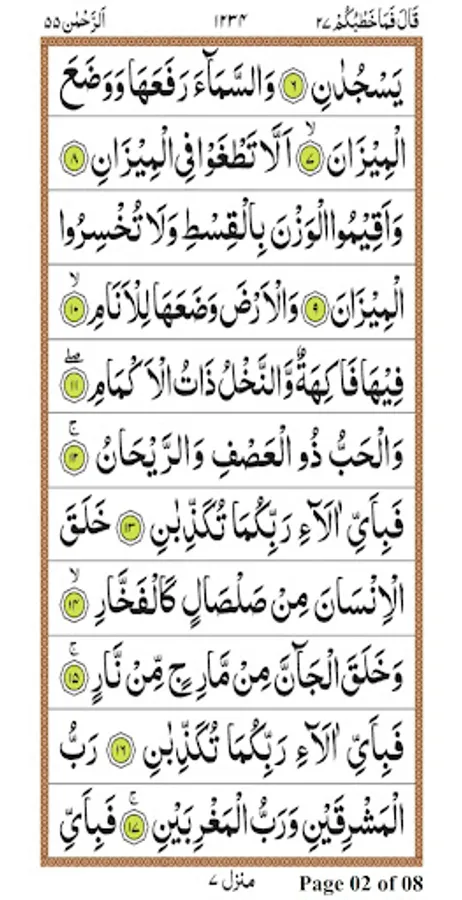 قَالَ فَمَا خَطْبُكُمْ ٢٧ ١٢٣٤ اَلرَّحْمٰن ٥٥
يَسْجُدٰنِ ٦ وَالسَّمَآءَ رَفَعَهَا وَوَضَعَ
الْمِيْزَانَ ۙ ٧ اَلَّا تَطْغَوْا فِي الْمِيْزَانِ ٨
وَاَقِيْمُوا الْوَزْنَ بِالْقِسْطِ وَلَا تُخْسِرُوا
الْمِيْزَانَ ٩ وَالْاَرْضَ وَضَعَهَا لِلْاَنَامِ ۙ ١٠
فِيْهَا فَاكِهَةٌ وَّالنَّخْلُ ذَاتُ الْاَكْمَامِ ۖ ١١
وَالْحَبُّ ذُو الْعَصْفِ وَالرَّيْحَانُ ۚ ١٢
فَبِاَيِّ اٰلَآءِ رَبِّكُمَا تُكَذِّبٰنِ ١٣ خَلَقَ
الْاِنْسَانَ مِنْ صَلْصَالٍ كَالْفَخَّارِ ۙ ١٤
وَخَلَقَ الْجَآنَّ مِنْ مَّارِجٍ مِّنْ نَّارٍ ۚ ١٥
فَبِاَيِّ اٰلَآءِ رَبِّكُمَا تُكَذِّبٰنِ ١٦ رَبُّ
الْمَشْرِقَيْنِ وَرَبُّ الْمَغْرِبَيْنِ ۚ ١٧ فَبِاَيِّ
منزل ٧ Page 02 of 08